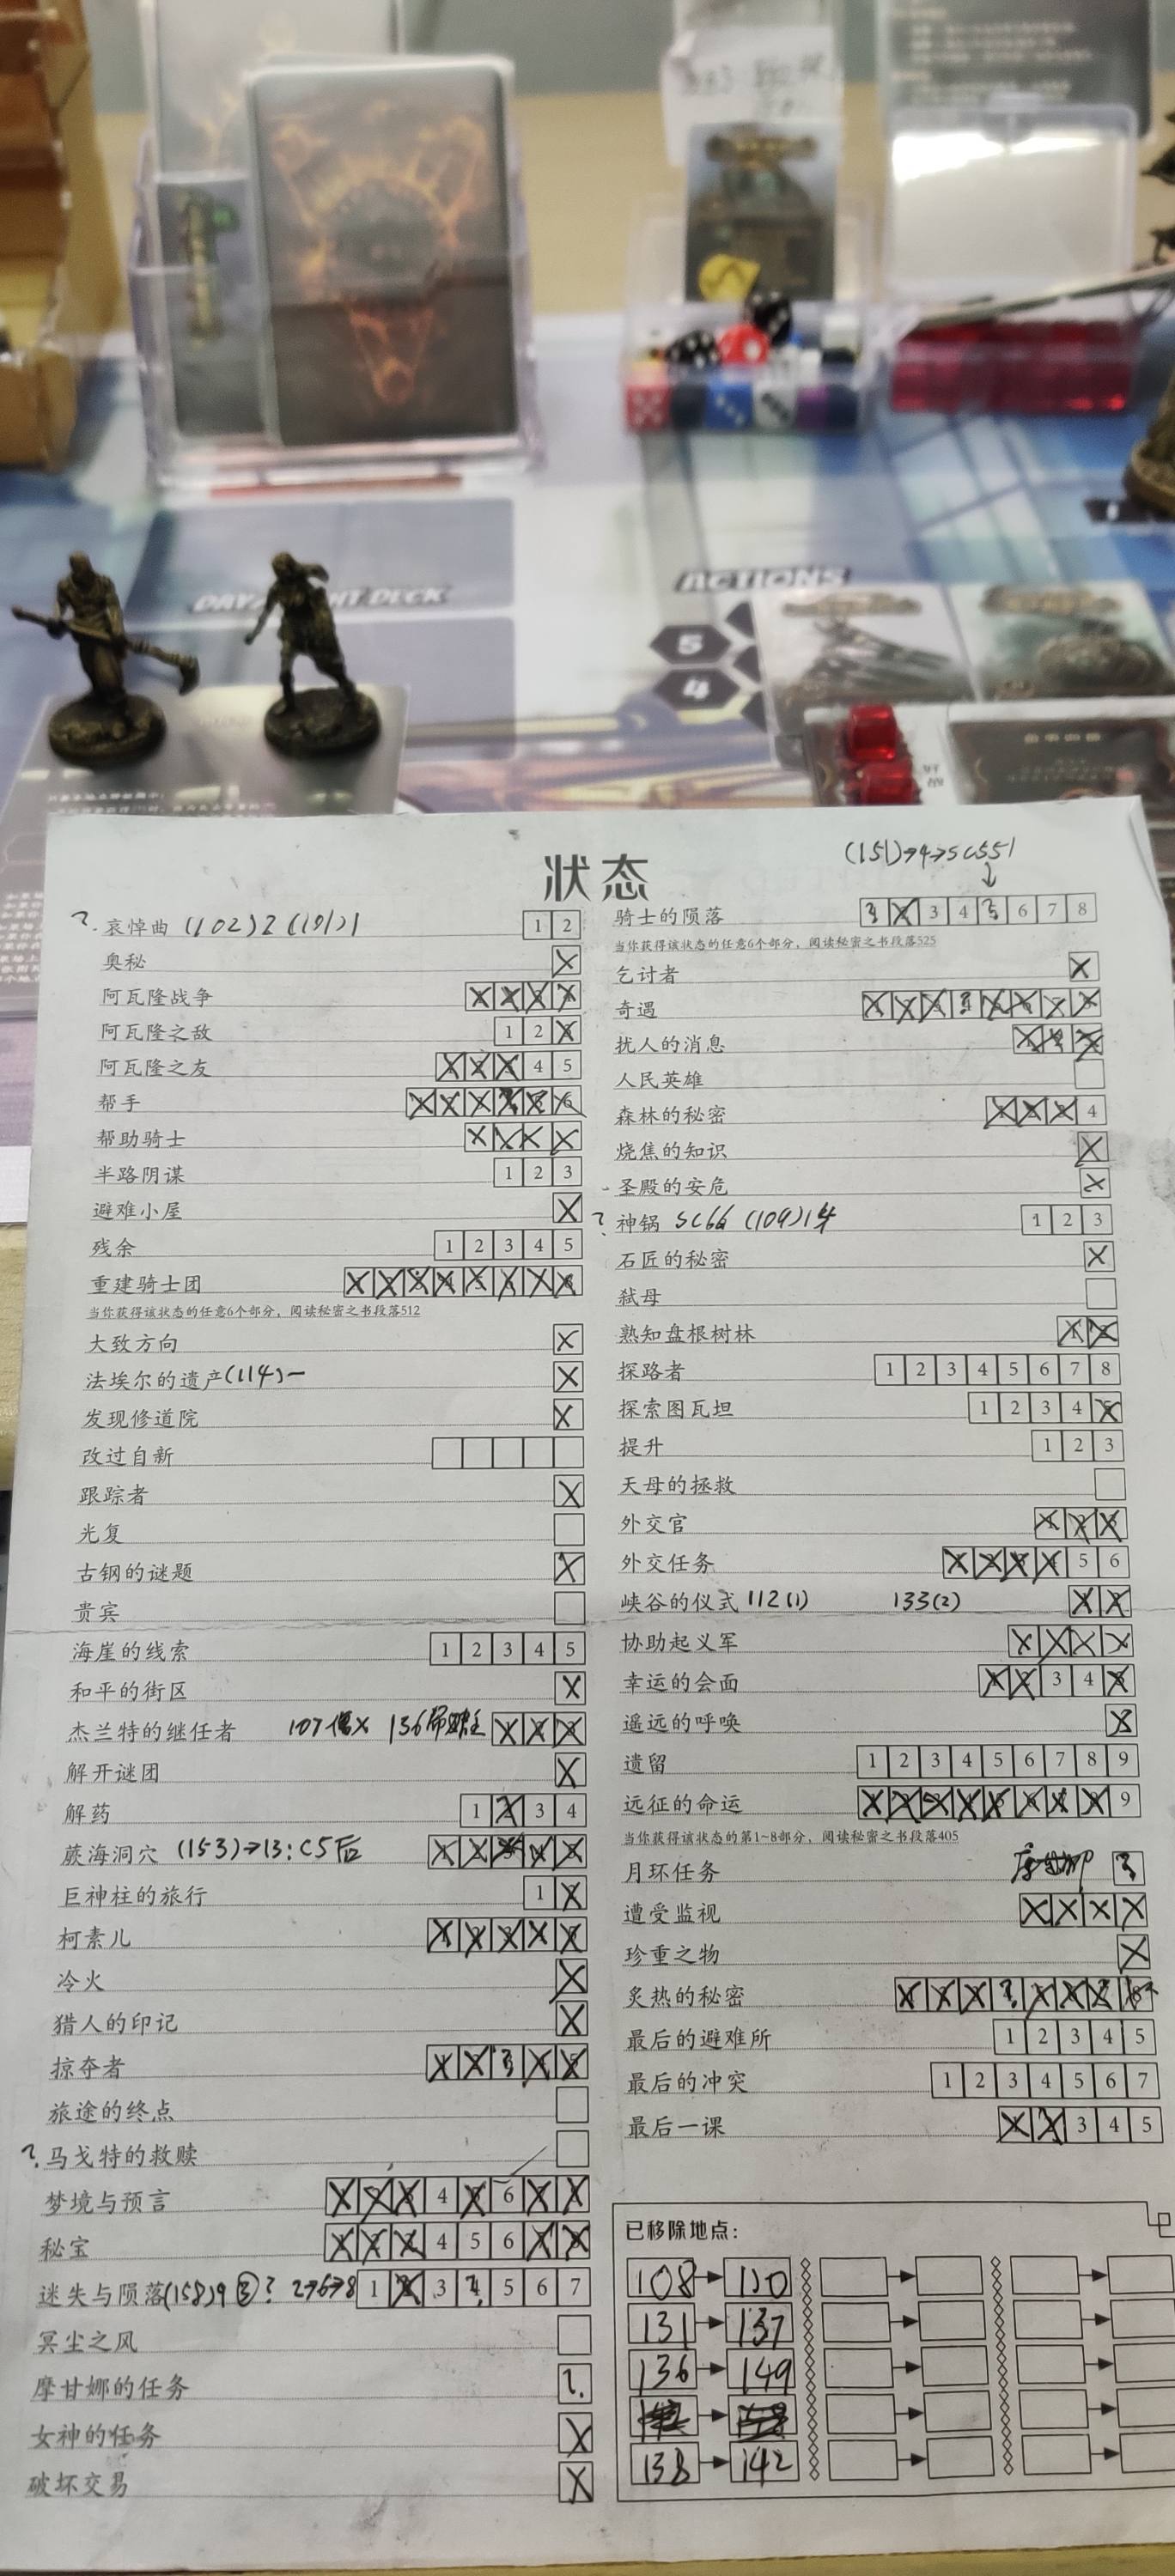 ACTIONS
5
4
状态
(151)→4→SC551
↓
?. 哀悼曲 (102)2 (101)1 1 2
奥秘
阿瓦隆战争
阿瓦隆之敌 1 2
阿瓦隆之友 4 5
帮手
帮助骑士
半路阴谋 1 2 3
避难小屋
残余 1 2 3 4 5
重建骑士团
当你获得该状态的任意6个部分，阅读秘密之书段落512
大致方向
法埃尔的遗产(114)一
发现修道院
改过自新
跟踪者
光复
古钢的谜题
贵宾
海崖的线索 1 2 3 4 5
和平的街区
杰兰特的继任者 107 136
解开谜团
解药 1 3 4
蕨海洞穴 (153)→13:C5后
巨神柱的旅行 1
柯素儿
冷火
猎人的印记
掠夺者
旅途的终点
?. 马戈特的救赎
梦境与预言 4 6
秘宝 4 5 6
迷失与陨落(158)9 ③? 2→6→8 1 3 5 6 7
冥尘之风
摩甘娜的任务 ?.
女神的任务
破坏交易
骑士的陨落 3 4 6 7 8
当你获得该状态的任意6个部分，阅读秘密之书段落525
乞讨者
奇遇
扰人的消息
人民英雄
森林的秘密 4
烧焦的知识
圣殿的安危
? 神锅 SC66 (109)1 1 2 3
石匠的秘密
弑母
熟知盘根树林
探路者 1 2 3 4 5 6 7 8
探索图瓦坦 1 2 3 4
提升 1 2 3
天母的拯救
外交官
外交任务 5 6
峡谷的仪式 112(1) 133(2)
协助起义军
幸运的会面 3 4
遥远的呼唤
遗留 1 2 3 4 5 6 7 8 9
远征的命运 9
当你获得该状态的第1~8部分，阅读秘密之书段落405
月环任务
遭受监视
珍重之物
炙热的秘密
最后的避难所 1 2 3 4 5
最后的冲突 1 2 3 4 5 6 7
最后一课 3 4 5
已移除地点：
108→110
131→137
136→149
138→142